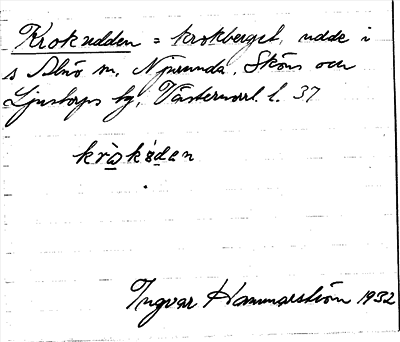 Krokudden = Krokberget, udde i
s Alnö sn, Njurunda, Sköns och
Ljustorps tg, Västernorrl. l. 37
kròkùdan
Ingvar Hammarström 1932